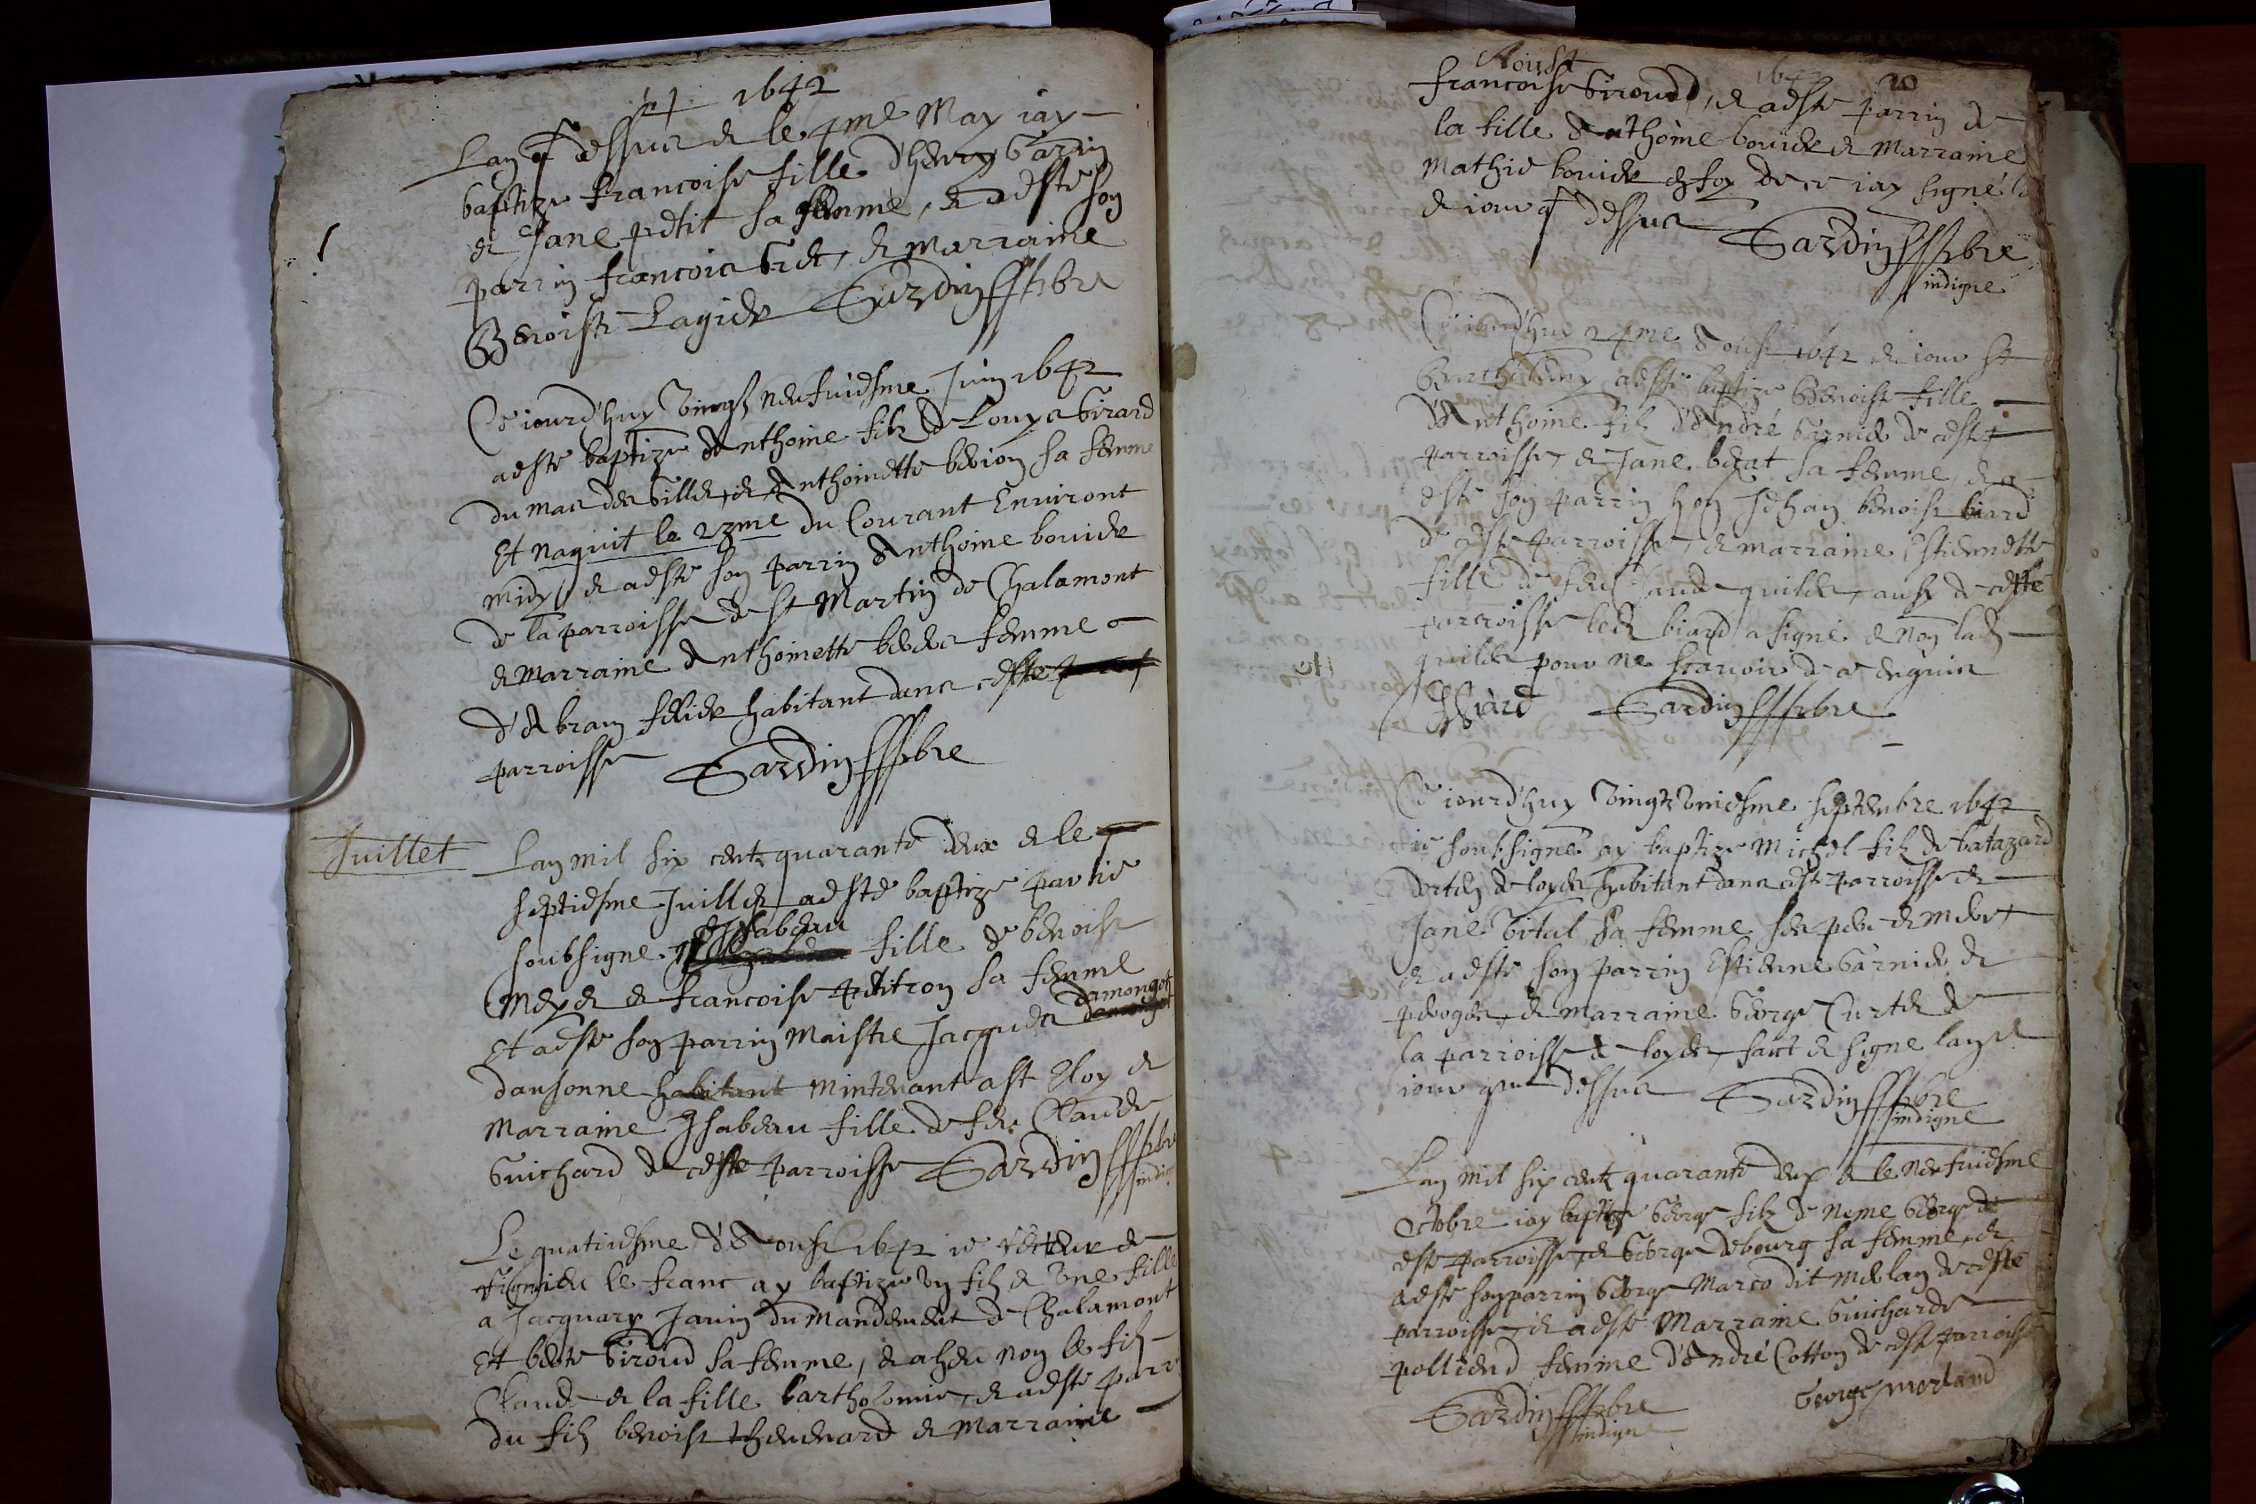 1642
Lan q dessus & le 4me May iay
baptize francoise fille d'henry Garin
& Jane petit sa femme, & a este son
parrin francois Gret, & marraine
Benoiste Lagier Sardin pbre
Ce iourd'huy vingt neufuiesme Juin 1642
a este baptize Anthoine filz de Louys Girard
du mas des Gilles, & Anthoinette benion sa femme
Et naquit le 23me du Courant Environt
midy, & a este son parrin Anthoine bouuier
de la parroisse de St Martin de Chalamont
& Marraine Anthoinette femme
d'Abram habitant dans ceste
parroisse Sardin pbre
Juillet
Lan mil six centz quarante deux & le
septiesme Juillet a este baptize par lie
soubsigne Isabeau fille de benoist
Meyer & francoise petitron sa femme
Et a este son parrin Maistre Jacques damongot
dausonne habitant mintenant a St Eloy &
Marraine Isabeau fille de feu Claude
Guichard de ceste parroisse Sardin pbre
indig
Le quatriesme d'Aoust 1642 ie recteur de
le franc ay baptize un filz & une fille
a Jacquary Janin du Mandement de Chalamont
Et Giroud sa femme, & a heu nom le filz
Claude & la fille bartholomie, & a este parr
du filz benoist thevenard & Marraine
Aoust 1642 20
francoise Giroud, & a este parrin de
la fille Anthoine bouuier & Marraine
Mathie bouuier en foy de ce iay signé
& iour q dessus Sardin pbre
indigne
Ce iourd'huy 24me d'Aoust 1642 & iour St
Barthelemy a este baptize Benoiste fille
d'Anthoine filz d'André Garnier de ceste
parroisse, & Jane berat sa femme, & a
este son parrin hon Jehan benoist biard
de ceste parroisse, & marraine Estiennette
fille de feu Claude quiller, aussy de ceste
parroisse led biard a signé & non lad
quiller pour ne scavoir de ce enquis
Biard Sardin pbre
Ce iourd'huy vingt uniesme septembre 1642
ie soubsigné ay baptize Michel filz de batazard
de loyes habitant dans ceste parroisse &
Jane Vital sa femme ses pere & mere
& a este son parrin Estienne Garnier de
peroges, & marraine George Curtet de
la parroisse de loyes, faict & signe lan &
iour que dessus Sardin pbre
indigne
Lan mil six centz quarante deux & le neufuiesme
Octobre iay baptize George filz de Neme George de
ceste parroisse, & George debourg sa femme, &
a este son parrin George Marco dit Merlan de ceste
parroisse, & a este Marraine Guicharde
polliend femme d'André Cotton de ceste parroisse
Sardin pbre George merland
indigne